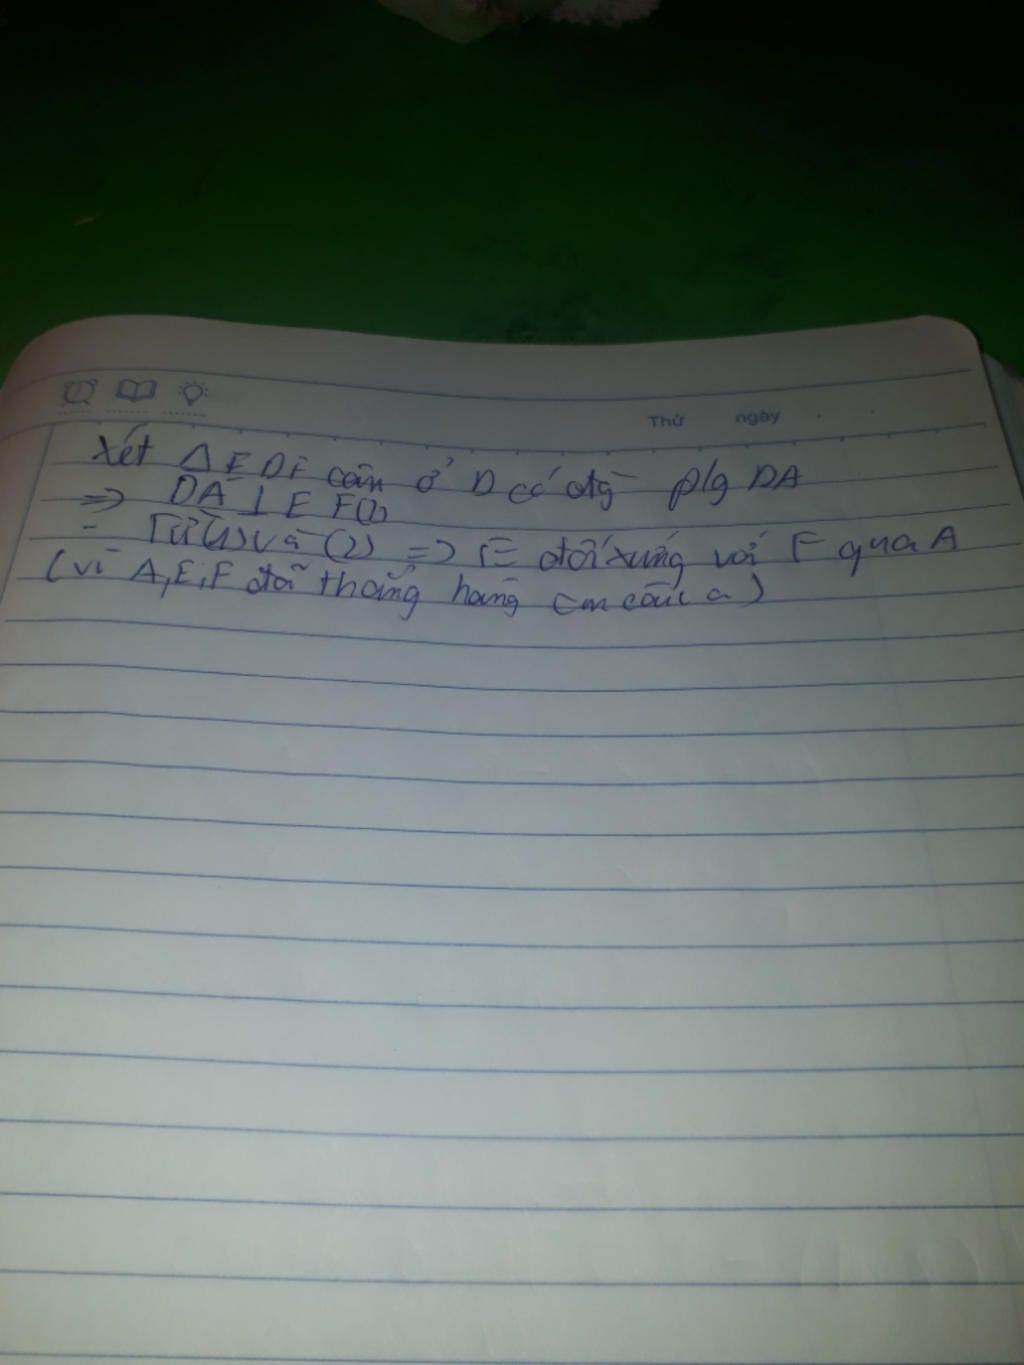 Thứ ngày
Xét Δ EDF cân ở D có đg p/g DA
=> DA ⊥ EF(2)
- Từ (1) và (2) => E đối xứng với F qua A
(vì A,E,F đã thẳng hàng cm câu a)